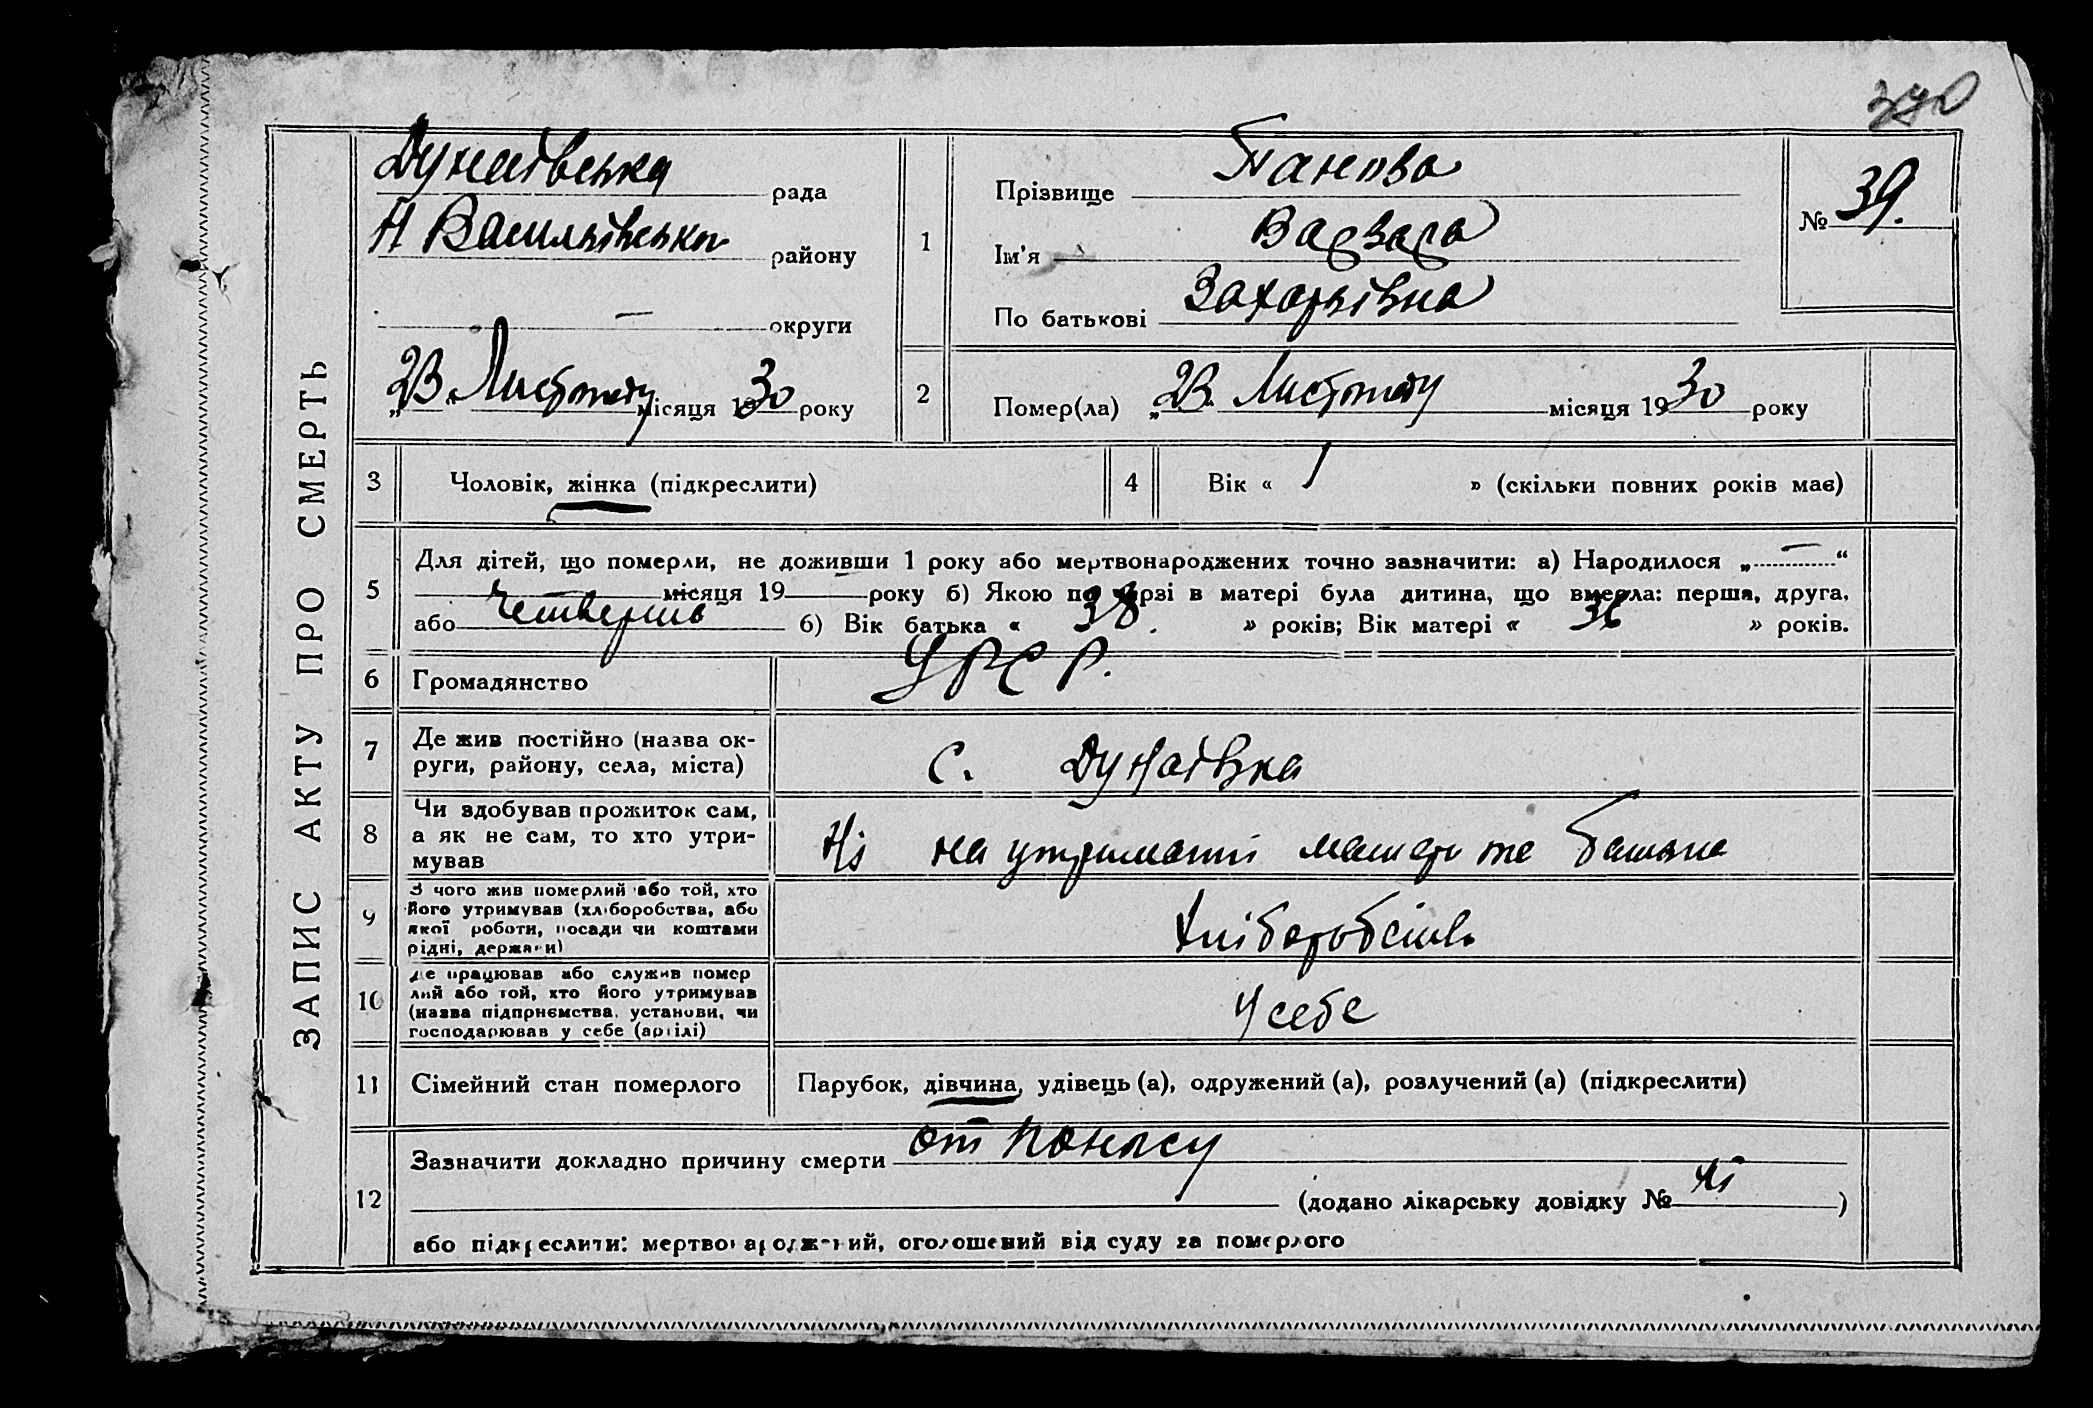 370
ЗАПИС АКТУ ПРО СМЕРТЬ
Дунаївська рада
Н Васильівська району
— округи
„23" Листопаду місяця 1930 року
1
Прізвище Панова
Ім'я Варвара
По батькові Захарьівна
№ 39.
2 Помер(ла) „23. Листопаду місяця 1930 року
3 Чоловік, жінка (підкреслити)
4 Вік « 1 » (скільки повних років має)
5 Для дітей, що померли, не доживши 1 року або мертвонароджених точно зазначити: а) Народилося „—“
місяця 19 року б) Якою по черзі в матері була дитина, що вмерла: перша, друга,
або четверта б) Вік батька « 38. » років; Вік матері « 36 » років.
6 Громадянство УРСР.
7 Де жив постійно (назва ок-
руги, району, села, міста) с. Дунаівка
8 Чи здобував прожиток сам,
а як не сам, то хто утри-
мував Ні на утриманні матери та батька
9 З чого жив померлий або той, хто
його утримував (хліборобства, або
якої роботи, посади чи коштами
рідні, держави) Хліборобство
10 Де працював або служив помер
лий або той, хто його утримував
(назва підприємства, установи, чи
господарював у себе (артілі) У себе
11 Сімейний стан померлого Парубок, дівчина, удівець (а), одружений (а), розлучений (а) (підкреслити)
12 Зазначити докладно причину смерти от поносу
(додано лікарську довідку № ні)
або підкреслити: мертвонароджений, оголошений від суду за померлого